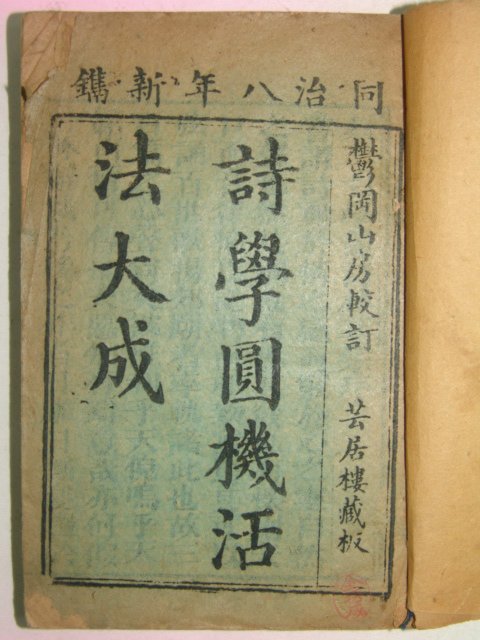 同治八年新鐫
鬱岡山房較訂 芸居樓藏板
詩學圓機活
法大成